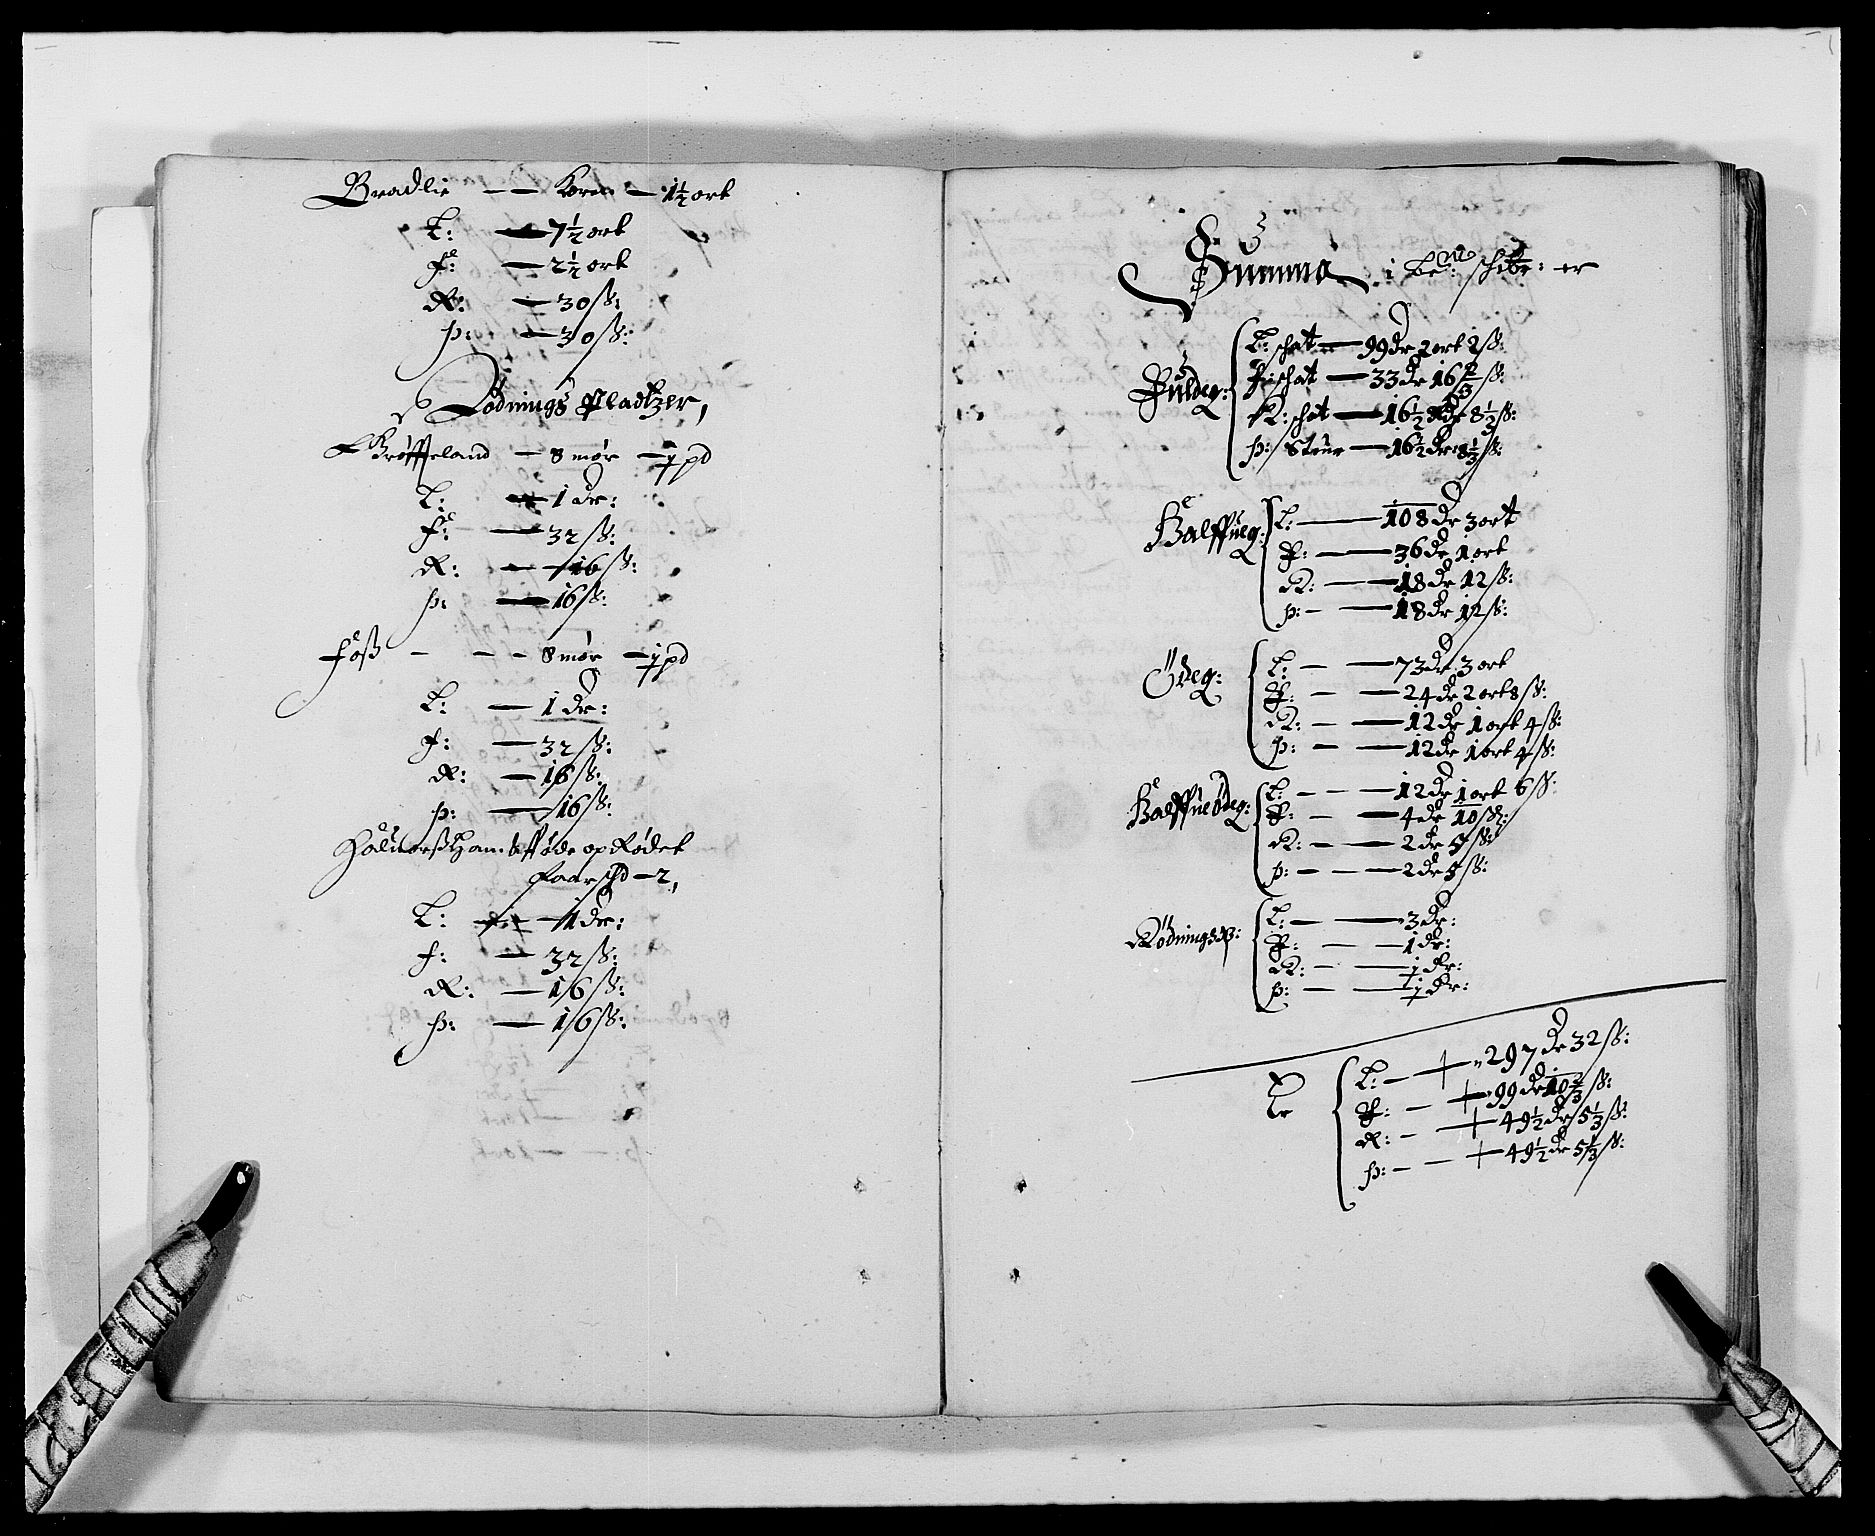 Bradlie — Koren — 1½ ort
L: — 7½ ort
F: — 2½ ort
R: — 30 ß:
P: — 30 ß:
Rödnings Pladtzer,
Brøffeland — Smør — 1 pd
L: — 1 dr:
F: — 32 ß:
R: — 16 ß:
P: — 16 ß:
Foss — Smør — 1 pd
L: — 1 dr:
F: — 32 ß:
R: — 16 ß:
P: — 16 ß:
øde op Rødet
Faarschd — 2,
L: — 1 dr:
F: — 32 ß:
R: — 16 ß:
P: — 16 ß:
Summa i er
Fuldeg:
L: schat — 99 dr 2 ort 2 ß:
F: schat — 33 dr 16⅔ ß:
R: schat — 16½ dr 8⅓ ß:
P: Steur — 16½ dr 8⅓ ß:
Halffueg:
L: — 108 dr 3 ort
F: — 36 dr 1 ort
R: — 18 dr 12 ß:
P: — 18 dr 12 ß:
Ödeg:
L: — 73 dr 3 ort
F: — 24 dr 2 ort 8 ß:
R: — 12 dr 1 ort 4 ß:
P: — 12 dr 1 ort 4 ß:
Halffueödeg:
L: — 12 dr 1 ort 6 ß:
F: — 4 dr 10 ß:
R: — 2 dr 5 ß:
P: — 2 dr 5 ß:
Rödningsp:
L: — 3 dr:
F: — 1 dr:
R: — ½ dr:
P: — ½ dr:
Er
L: — 297 dr 32 ß:
F: — 99 dr 10⅔ ß:
R: — 49½ dr 5⅓ ß:
P: — 49½ dr 5⅓ ß: